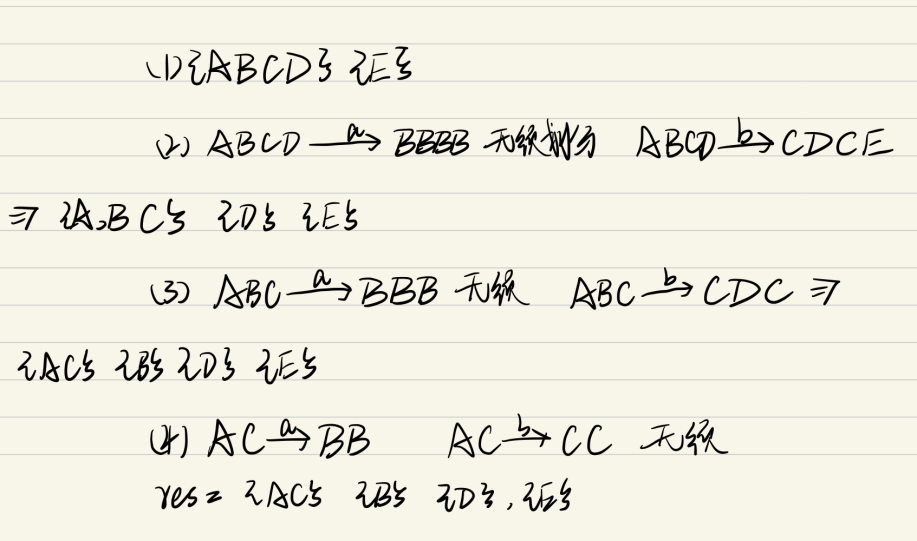 (1){ABCD} {E}
(2) ABCD a→ BBBB 无须划分 ABCD b→ CDCE
⇒ {A,BC} {D} {E}
(3) ABC a→ BBB 无须 ABC b→ CDC ⇒
{AC} {B} {D} {E}
(4) AC a→ BB AC b→ CC 无须
res= {AC} {B} {D}, {E}